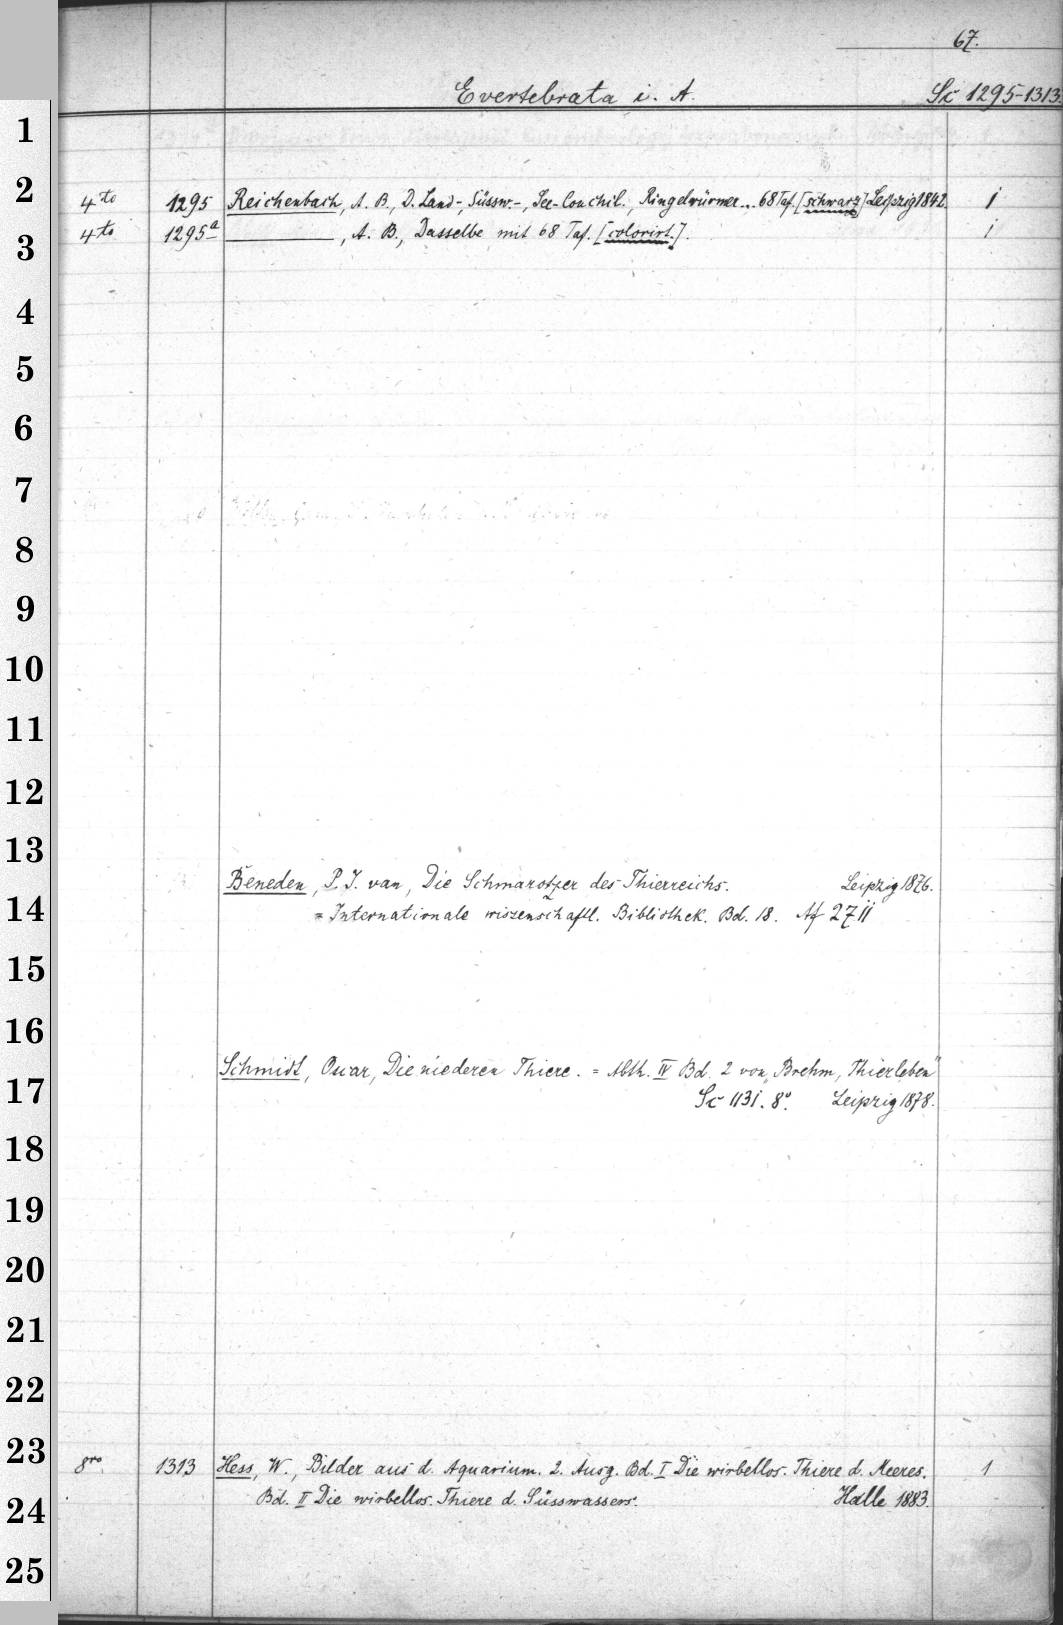 67.
Evertebrata i. A. Sc 1295-1313.
1
2
4to 1295 Reichenbach, A. B., D. Land-, Süssw.-, See-Conchil., Ringelwürmer... 68 Taf. [schwarz] Leipzig 1842. 1
4to 1295a ———, A. B., Dasselbe mit 68 Taf. [colorirt.]. 1
3
4
5
6
7
8
9
10
11
12
13
Beneden, P. J. van, Die Schmarotzer des Thierreichs. Leipzig 1876.
14
= Internationale wissenschaftl. Bibliothek. Bd. 18. Af 27 ii
15
16
Schmidt, Oscar, Die niederen Thiere. = Abth. IV Bd. 2 von „Brehm, Thierleben"
17
Sc 1131. 8°. Leipzig 1878.
18
19
20
21
22
23
8vo 1313 Hess, W., Bilder aus d. Aquarium. 2. Ausg. Bd. I Die wirbellos. Thiere d. Meeres. 1
Bd. II Die wirbellos. Thiere d. Süsswassers. Halle 1883.
24
25